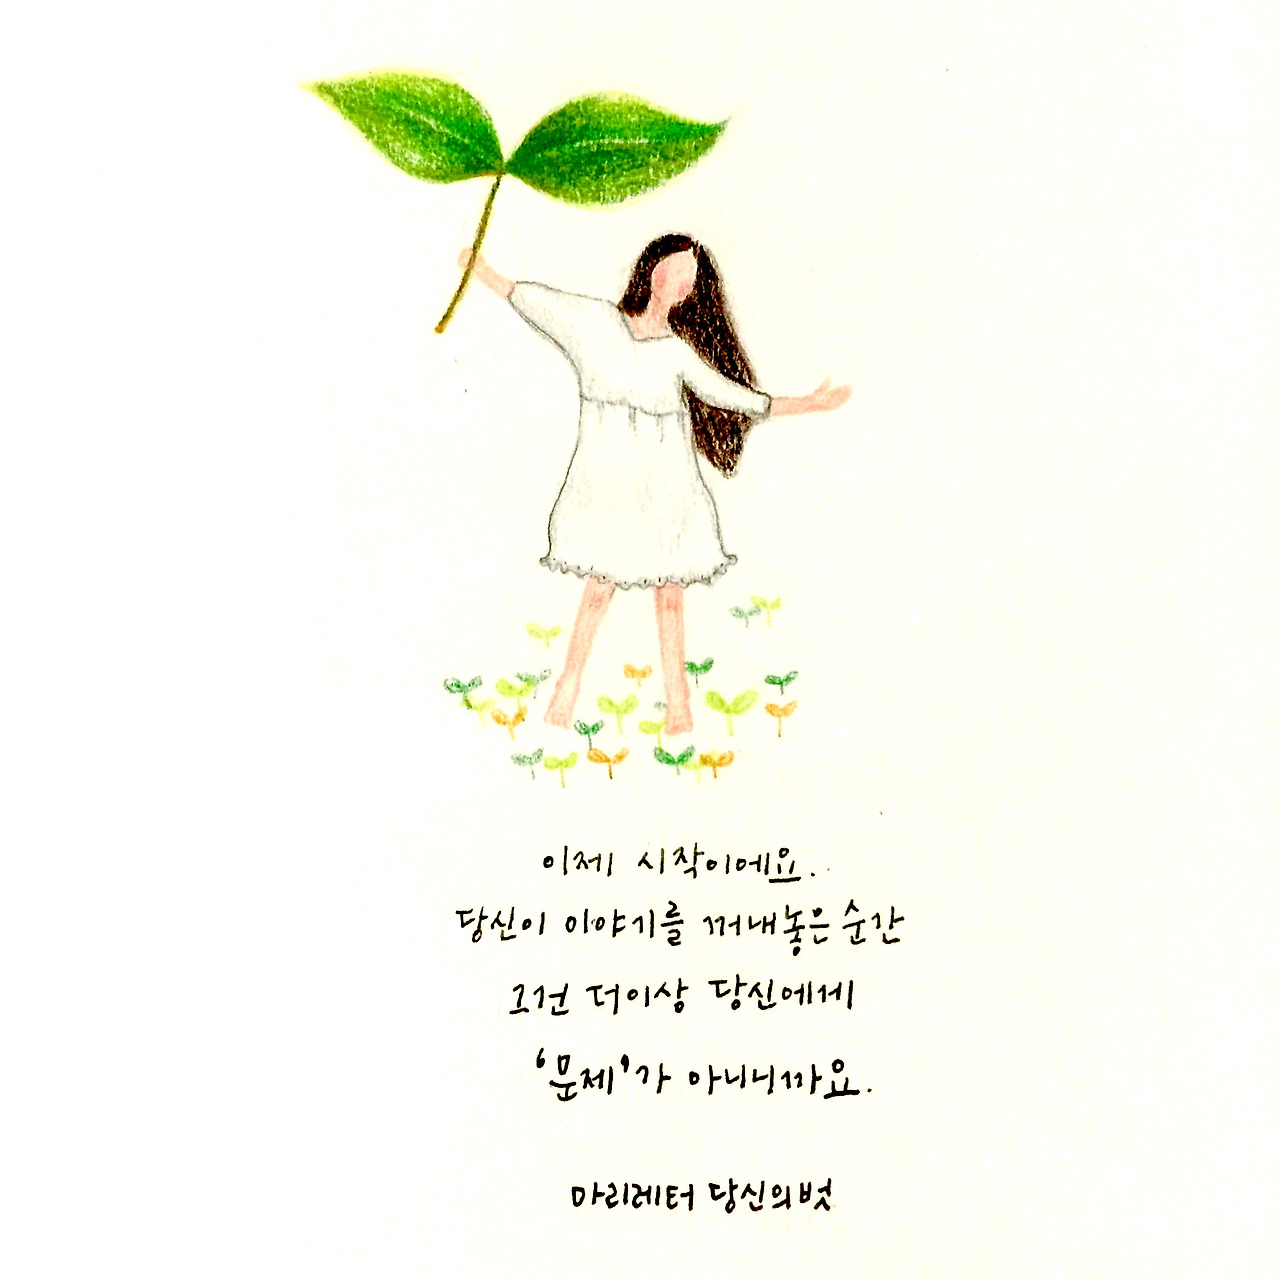 이제 시작이에요.
당신이 이야기를 꺼내놓은 순간
그건 더이상 당신에게
'문제'가 아니니까요.
마리레터 당신의벗